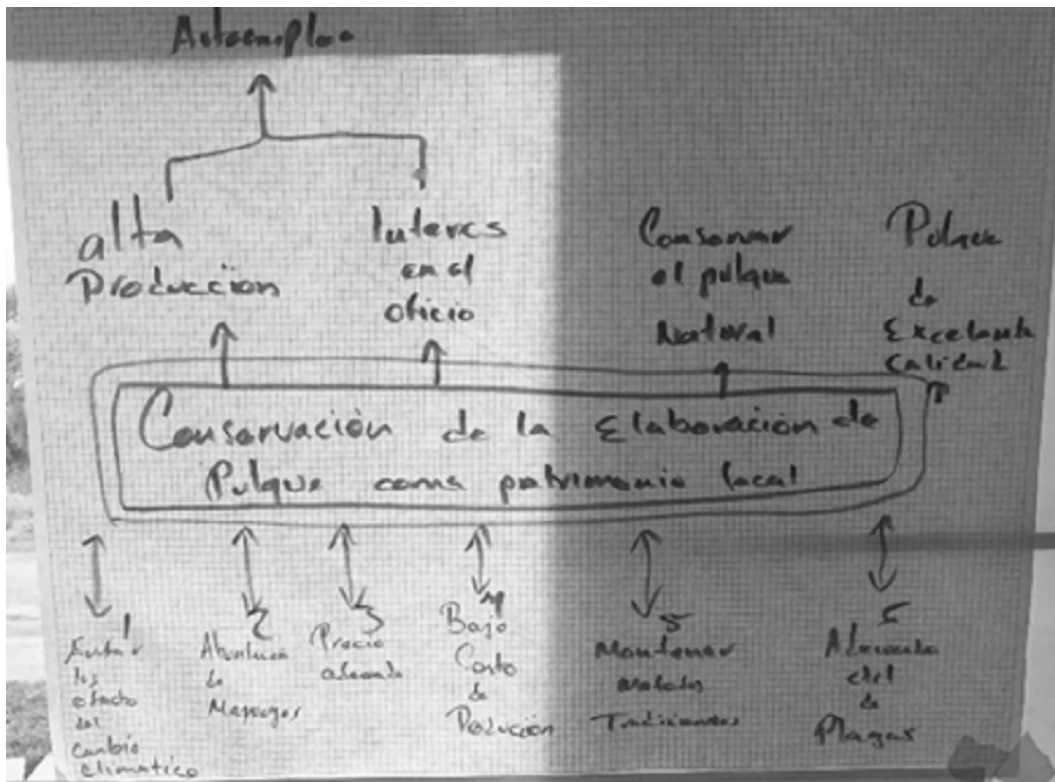 Autoempleo
alta
Producción
Interes
en el
oficio
Conservar
el pulque
Natural
Pulque
de
Excelente
Calidad
Conservación de la Elaboración de
Pulque como patrimonio local
1
Evitar
los
efecto
del
Cambio
climatico
2
Abundancia
de
Magueyes
3
Precio
adecuado
4
Bajo
Costo
de
Producción
5
Mantener
metodos
Tradicionales
de
Plagas